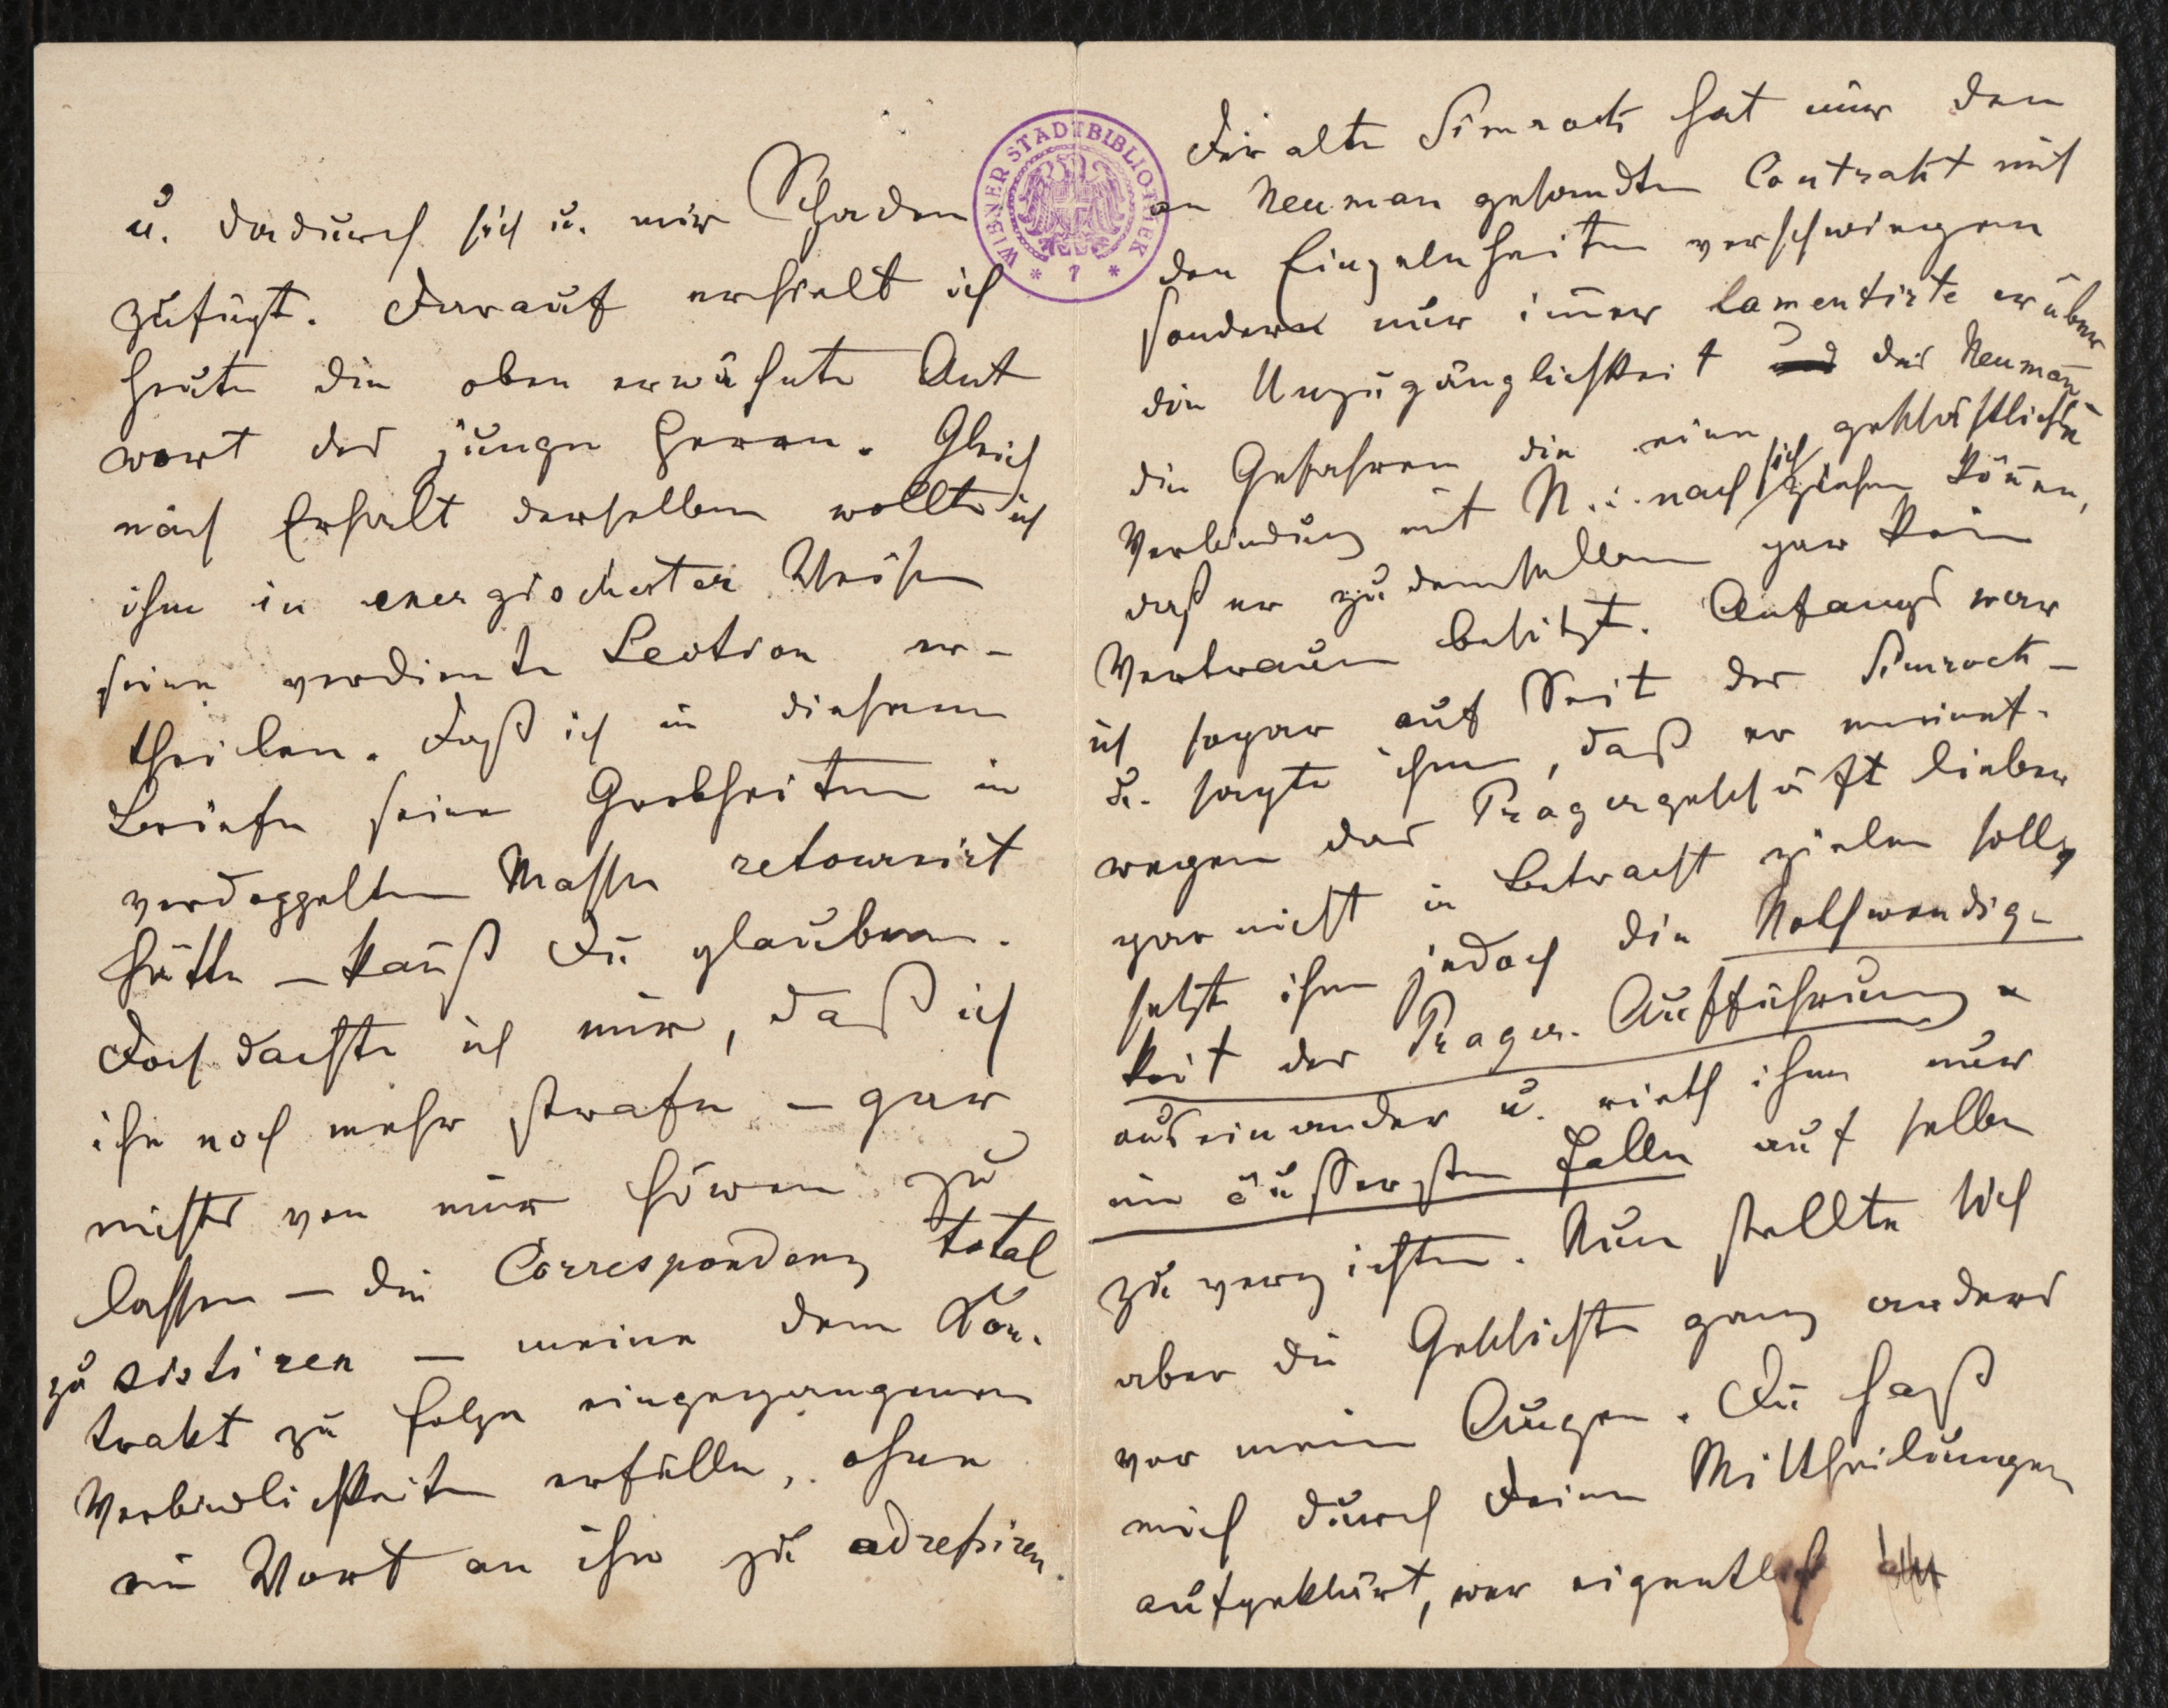 u. dadurch sich u. mir Schaden
zufügt. Darauf erhielt ich
heute die oben erwähnte Ant
wort des junge Herrn. Gleich
nach Erhalt derselben wollte ich
ihm in energischester Weise
seine verdiente Lection er-
theilen. Daß ich in diesem
Briefe seine Grobheiten in
verdoppelten Masse retournirt
hätte – kannst Du glauben.
Doch dachte ich mir, daß ich
ihn noch mehr strafe – gar
nichts von mir hören zu
lassen – die Correspondenz total
zu sistiren – meine dem Kon-
trakt zu folge eingegangenen
Verbindlichkeiten erfülle, ohne
ein Wort an ihn zu adressiren.
WIENER STADTBIBLIOTHEK * 7 *
Der alte Simrock hat mir den
an Neuman gesandten Contrakt mit
den Einzelnheiten verschwiegen
sondern nur im̄er lamentirte er über
die Unzugänglichkeit des Neuman̄
die Gefahren die eine geschäftliche
Verbindung mit N... nach sich ziehen kön̄en,
daß er zu demselben gar kein
Vertrauen besitzt. Anfangs war
ich sogar auf Seit der Simrock–
u. sagte ihm, daß er meinet-
wegen das Pragergeschäft lieber
gar nicht in Betracht ziehen solle
setzte ihm jedoch die Nothwendig-
keit der Prager Aufführung
auseinander u. rieth ihm nur
im äussersten Falle auf selbe
zu verzichten. Nun stellte sich
aber die Geschichte ganz anders
vor mein Augen. Du hast
mich durch Deine Mittheilungen
aufgeklärt, wer eigentlich